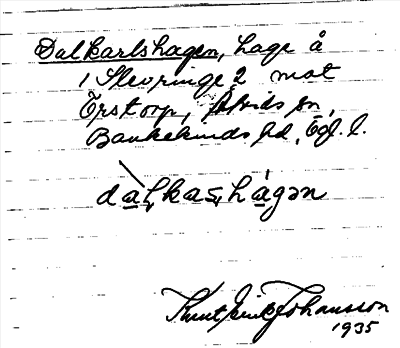 Dalkarlshagen, hage å
1 Slevringe 2 mot
Örstorp, Åtvids sn,
Bankekinds hd, Ögl. l.
dàl̥kas̥hágən
Knut Erik Johansson
1935